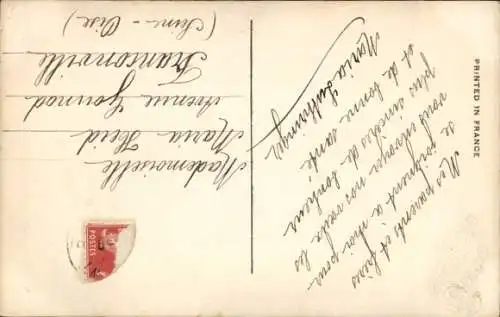 Mes parents et frères
se joignent à moi pour
vous envoyer nos vœux les
plus sincères de bonheur
et de bonne santé
Maria Luthringer
Mademoiselle
Maria Heid
Avenue Gounod
Franconville
(Seine-Oise)
PRINTED IN FRANCE
POSTES